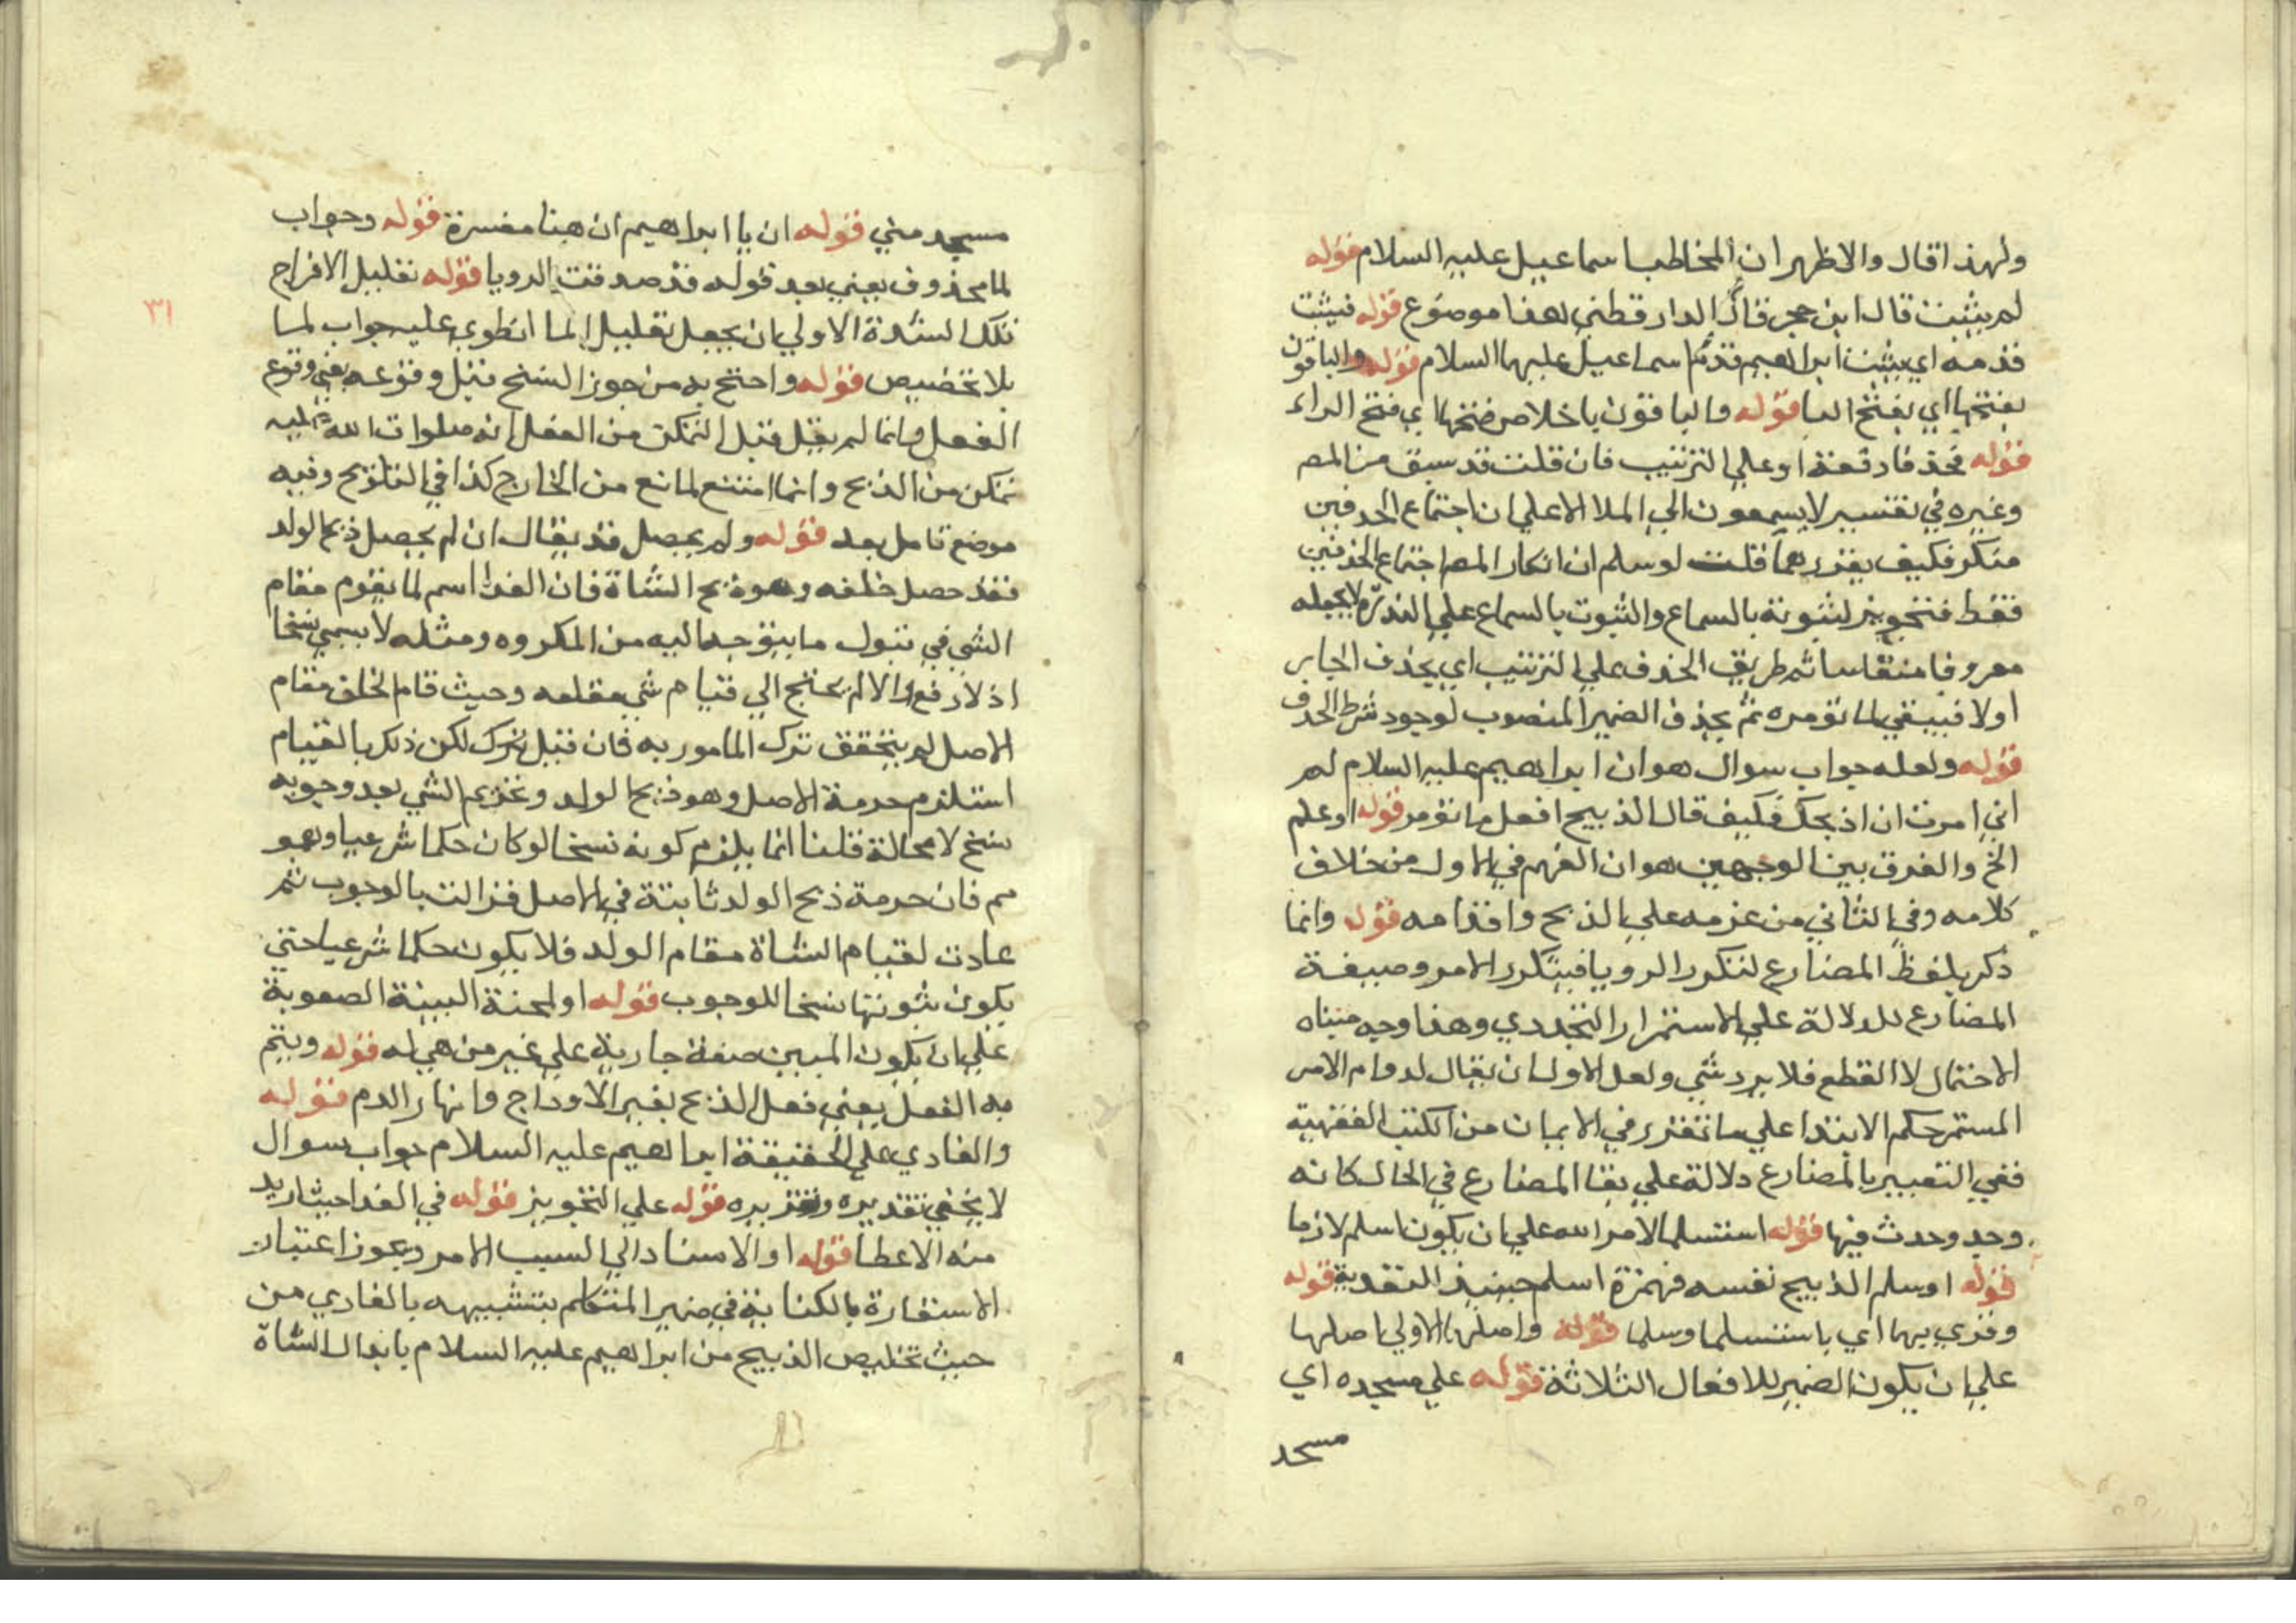 ولهذا قال والاظهر ان المخاطب اسماعيل عليه السلام قوله
لم يثبت قال ابن حجر قال الدارقطني هذا موضوع قوله فيثبت
قدمه اي يثبت ابراهيم قدم اسماعيل عليهما السلام قوله والباقون
بفتحها اي بفتح اليا قوله والباقون باخلاص فتحها اي فتح الراء
قوله فحذفا دفعة او علي الترتيب فان قلت قد سبق من المص
وغيره في تفسير لا يسمعون الي الملا الاعلي ان اجتماع الحذفين
منكر فكيف يقررهما قلت لو سلم ان انكار المص اجتماع الحذفين
فقط فتجويز لثبوته بالسماع والثبوت بالسماع علي الندرة لا يجعله
معروفا منقاسا ثم طريق الحذف علي الترتيب اي يحذف الجابر
اولا فيبقي ما تؤمره ثم يحذف الضمير المنصوب لوجود شرط الحذف
قوله ولعله جواب سوال هو ان ابراهيم عليه السلام لم
اني امرت ان اذبحك فكيف قال الذبيح افعل ما تؤمر قوله او علم
الخ والفرق بين الوجهين هو ان الفهم في الاول من خلاف
كلامه وفي الثاني من عزمه علي الذبح واقدامه قوله وانما
ذكر بلفظ المضارع لتكرر الرويا فيتكرر الامر وصيغة
المضارع للدلالة علي الاستمرار التجددي وهذا وجه مبناه
الاحتمال لا القطع فلا يرد شي ولعل الاولي ان يقال لدوام الامر
المستمر حكم الابتدا علي ما تقرر في الايمان من الكتب الفقهية
ففي التعبير بالمضارع دلالة علي بقا المضارع في الحال كانه
وجد وحدث فيها قوله استسلما لامر الله علي ان يكون اسلم لازما
قوله او سلم الذبيح نفسه فهمزة اسلم حينيذ للتعدية قوله
وقري بهما اي باستسلما وسلما قوله واصلها الاولي اصلهما
علي ان يكون الضمير للافعال الثلاثة قوله علي مسجده اي
مسجد
٣١
مسجد مني قوله ان يا ابراهيم ان هنا مفسرة قوله وجواب
لما محذوف يعني بعد قوله قد صدقت الرويا قوله تعليل لافراج
تلك الشدة الاولي ان يجعل تعليلا لما انطوي عليه جواب لما
بلا تخصيص قوله واحتج به من جوز النسخ قبل وقوعه يعني وقوع
الفعل وانما لم يقل قبل التمكن من الفعل لانه صلوات الله عليه
تمكن من الذبح وانما امتنع لمانع من الخارج كذا في التلويح وفيه
موضع تامل بعد قوله ولم يحصل قد يقال ان لم يحصل ذبح الولد
فقد حصل خلفه وهو ذبح الشاة فان الفدا اسم لما يقوم مقام
الشي في قبول ما يتوجه اليه من المكروه ومثله لا يسمي نسخا
اذ لا رفع والا لم يحتج الي قيام شي مقامه وحيث قام الخلف مقام
الاصل لم يتحقق ترك المامور به فان قيل ترك لكن ذلك بالقيام
استلزم حرمة الاصل وهو ذبح الولد وتحريم الشي بعد وجوبه
نسخ لا محالة قلنا انما يلزم كونه نسخا لو كان حكما شرعيا وهو
مم فان حرمة ذبح الولد ثابتة في الاصل فزالت بالوجوب ثم
عادت لقيام الشاة مقام الولد فلا يكون حكما شرعيا حتي
يكون ثبوتها نسخا للوجوب قوله او المحنة البينة الصعوبة
علي ان يكون المبين صفة جارية علي غير من هي له قوله ويتم
به الفعل يعني فعل الذبح بفير الاوداج وانهار الدم قوله
والفادي علي الحقيقة ابراهيم عليه السلام جواب سوال
لا يخفي تقديره وتقريره قوله علي التجويز قوله في الفدا حيث اريد
منه الاعطا قوله او الاسناد الي السبب الامر ويجوز اعتبار
الاستعارة بالكناية في ضمير المتكلم بتشبيهه بالفادي من
حيث تخليص الذبيح من ابراهيم عليه السلام بابدال الشاة